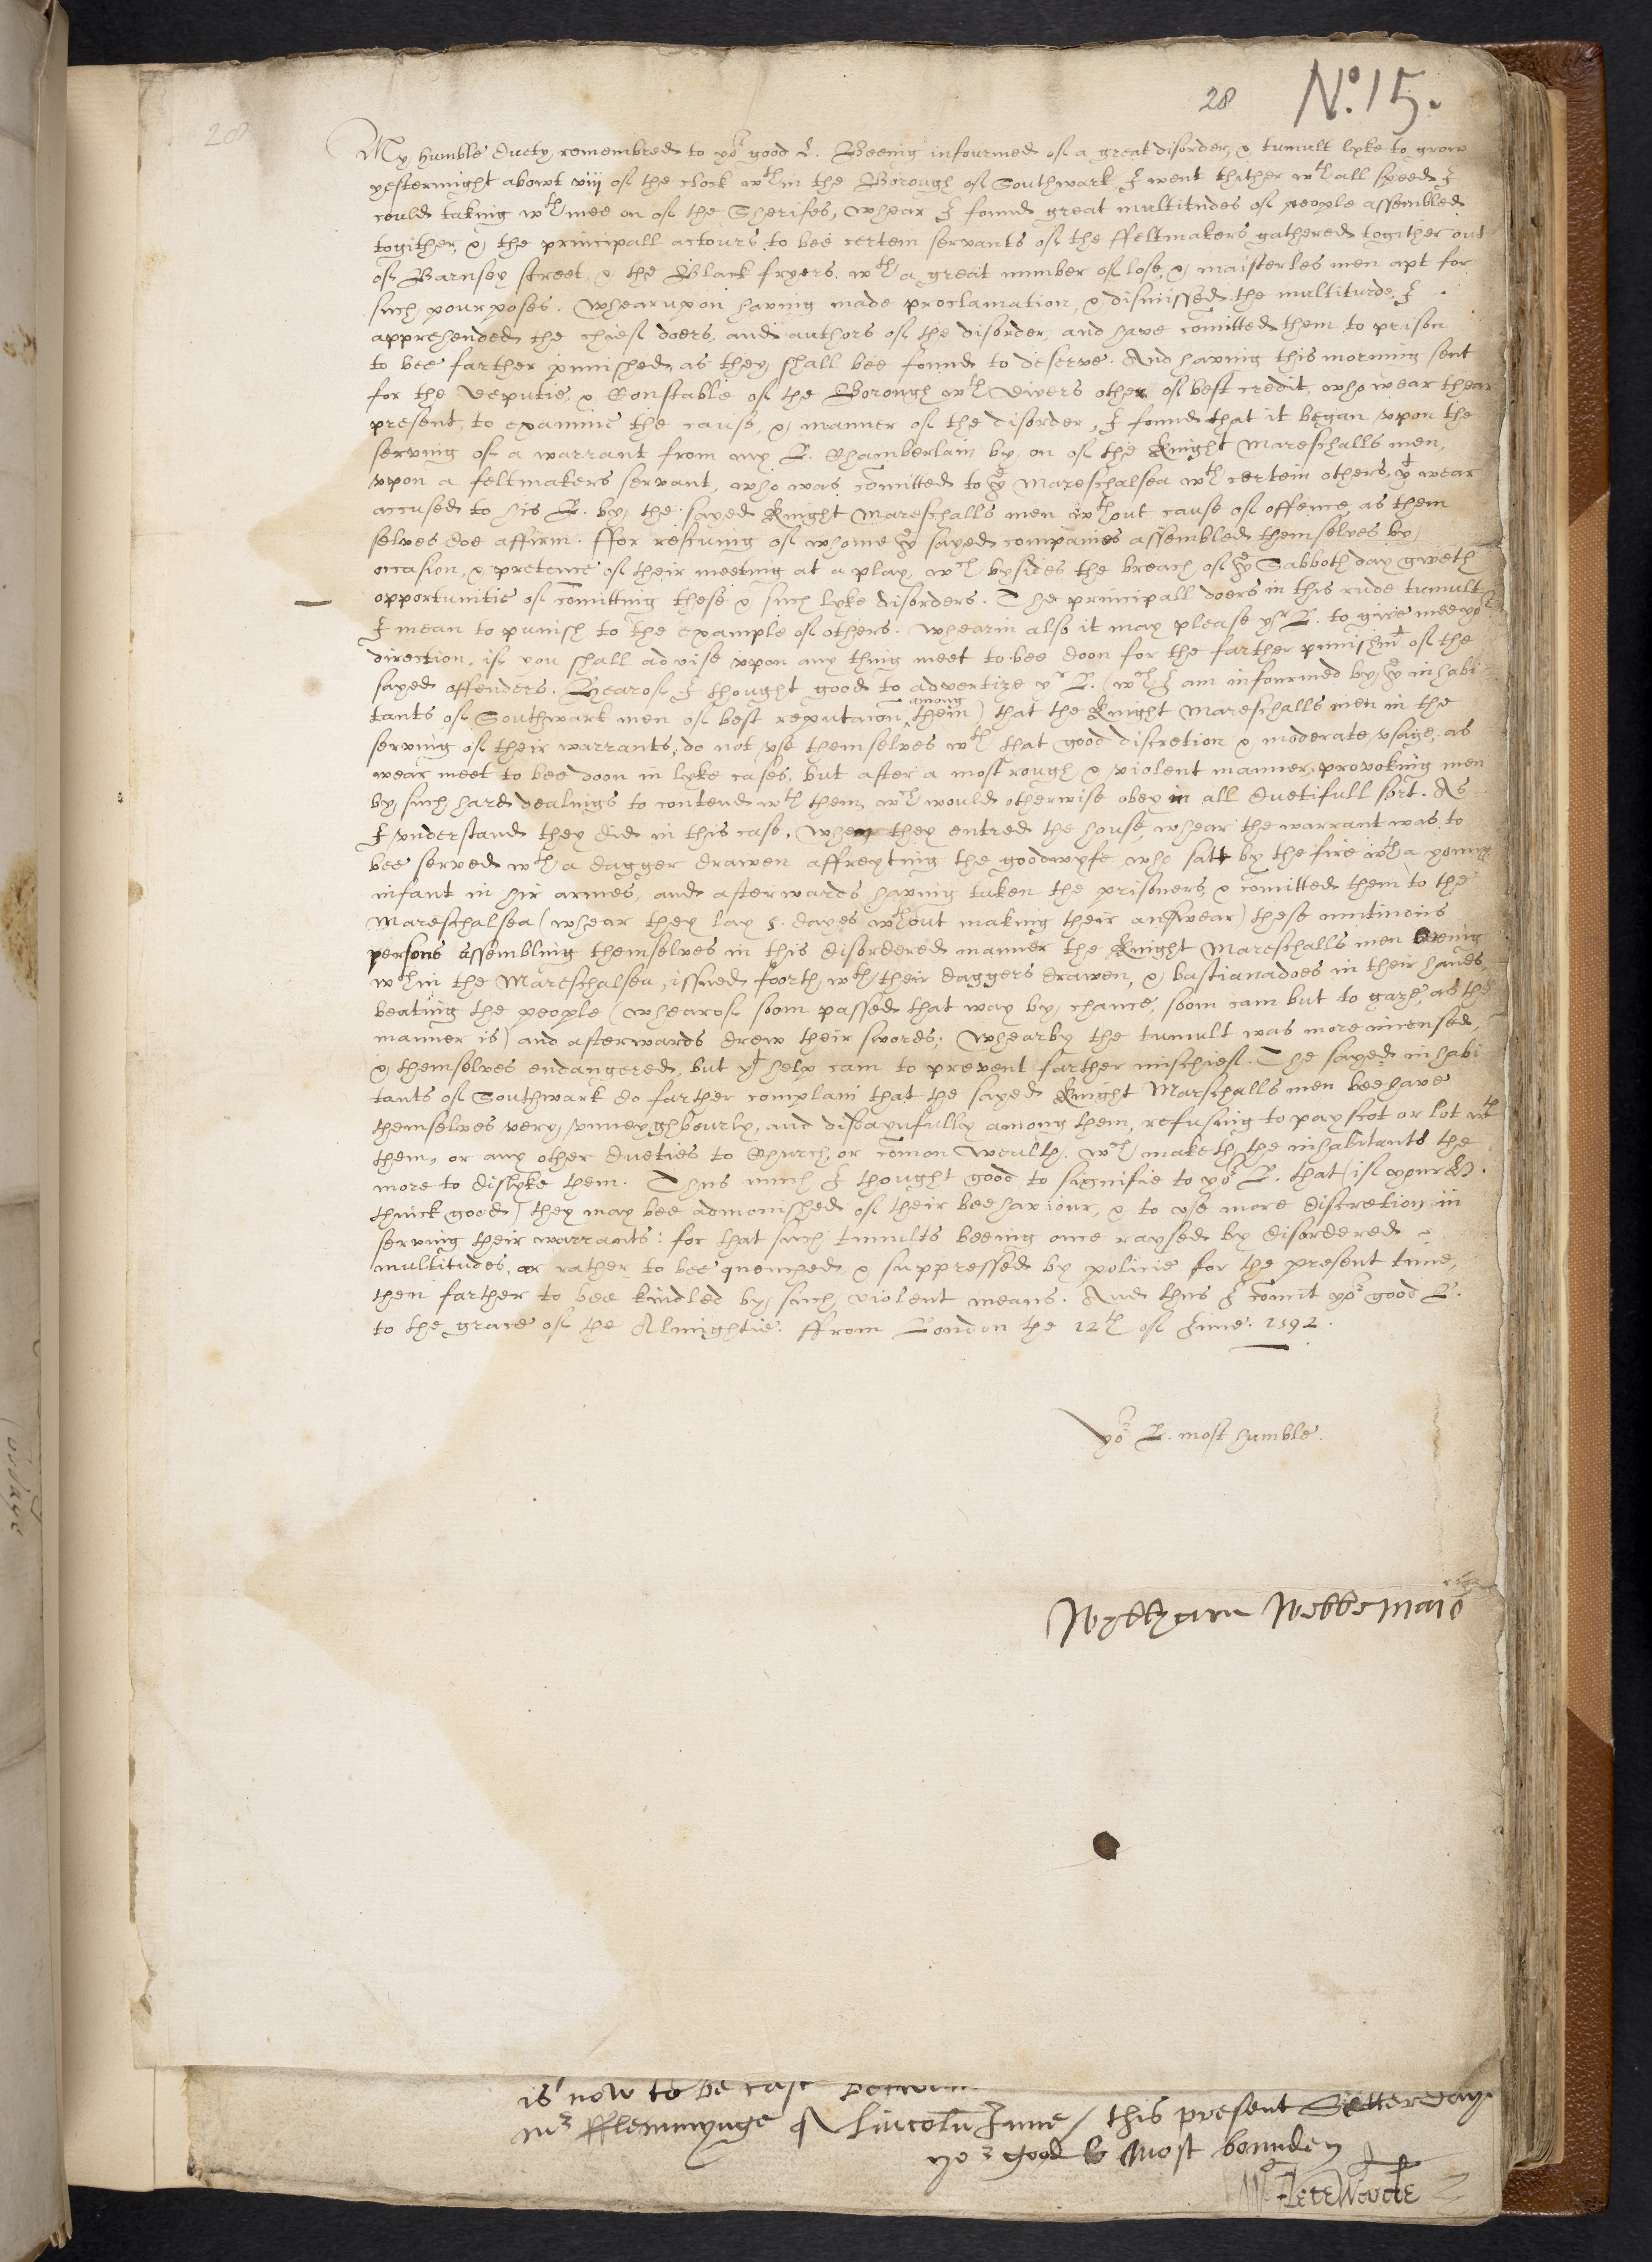 28 No. 15.
208
My humble duety remembred to yor good L. Beeing infourmed of a great disorder, & tumult lyke to grow
yesternight abowt viij of the clock wthin the Borough of Southwark I went thither wth all speed I
could taking wth mee on of the Sherifes, whear I found great multitudes of people assembled
togither, & the principall actours to bee certein servants of the ffeltmakers gathered togither out
of Barnsey street, & the Black fryers, wth a great number of lose & maisterles men apt for
such pourposes. Whearupon having made proclamation, & dismissed the multitude, I
apprehended the chief doers, and authors of the disorder, and have comitted them to prison
to bee farther punished, as they shall bee found to deserve. And having this morning sent
for the Deputie, & Constable of the Borough wth divers other of best credit, who wear thear
present, to examine the cause, & manner of the disorder, I found that it began vpon the
serving of a warrant from my L. Chamberlain by on of the Knight Mareschalls men,
vpon a feltmakers servant, who was comitted to ye Mareschalsea wth certein others, yt wear
accused to his L. by the sayed Knight Mareschalls men wthout cause of offence, as them
selves doe affirm. ffor rescuing of whome ye sayed companies assembled themselves by
occasion, & pretence of their meeting at a play, wch bysides the breach of ye Sabboth day giveth
opportunitie of comitting these & such lyke disorders. The principall doers in this rude tumult
I mean to punish to the example of others. Whearin also it may please yr L. to give mee yor
direction, if you shall advise vpon any thing meet to bee doon for the farther punishmt of the
sayed offenders. Hearof I thought good to advertize yr L. (wch I am infourmed by ye inhabi
among
tants of Southwark men of best reputacon them) that the Knight Mareschalls men in the
serving of their warrants, do not vse themselves wth that good discretion & moderate vsage, as
wear meet to bee doon in lyke cases, but after a most rough & violent manner, provoking men
by such hard dealings to contend wth them, wch would otherwise obey in all duetifull sort. As
I vnderstand they did in this case. When they entred the house, whear the warrant was to
bee served wth a dagger drawen affreyting the goodwyfe, who satt by the fire wth a young
infant in hir armes, and afterwards having taken the prisoners, & comitted them to the
Mareschalsea (whear they lay 5. dayes wthout making their answear) these mutinous
persons assembling themselves in this disordered manner, the Knight Mareschalls men beeing
wthin the Mareschalsea, issued foorth wth their daggers drawen, & bastianadoes in their hands,
beating the people (whearof soom passed that way by chance, soom cam but to gaze, as the
manner is) and afterwards drew their swords; Whearby the tumult was more incensed,
& themselves endangered, but yt help cam to prevent farther mischief. The sayed inhabi
tants of Southwark do farther complain that the sayed Knight Marschalls men beehave
themselves very vnneyghbourly, and disdaynfully among them, refusing to pay scot or lot wth
them, or any other dueties to Church, or comon Wealth, wch maketh the inhabitants the
more to dislyke them. Thus much I thought good to signifie to yor L. that (if your
thinck good) they may bee admonished of their beehaviour, & to vse more discretion in
serving their warrants: for that such tumults beeing once raysed by disordered
multitudes, ar rather to bee quenched & suppressed by policie for the present time,
then farther to bee kindled by such violent means. And thus I comit yor good L.
to the grace of the Almightie. ffrom London the 12th of June. 1592.
yor L. most humble.
Wyllyam Webbe maior
is now to be
mr fflemmynge of Lincolns Inne / this present Setterday
yor good L most bounden
W. Fletewoode